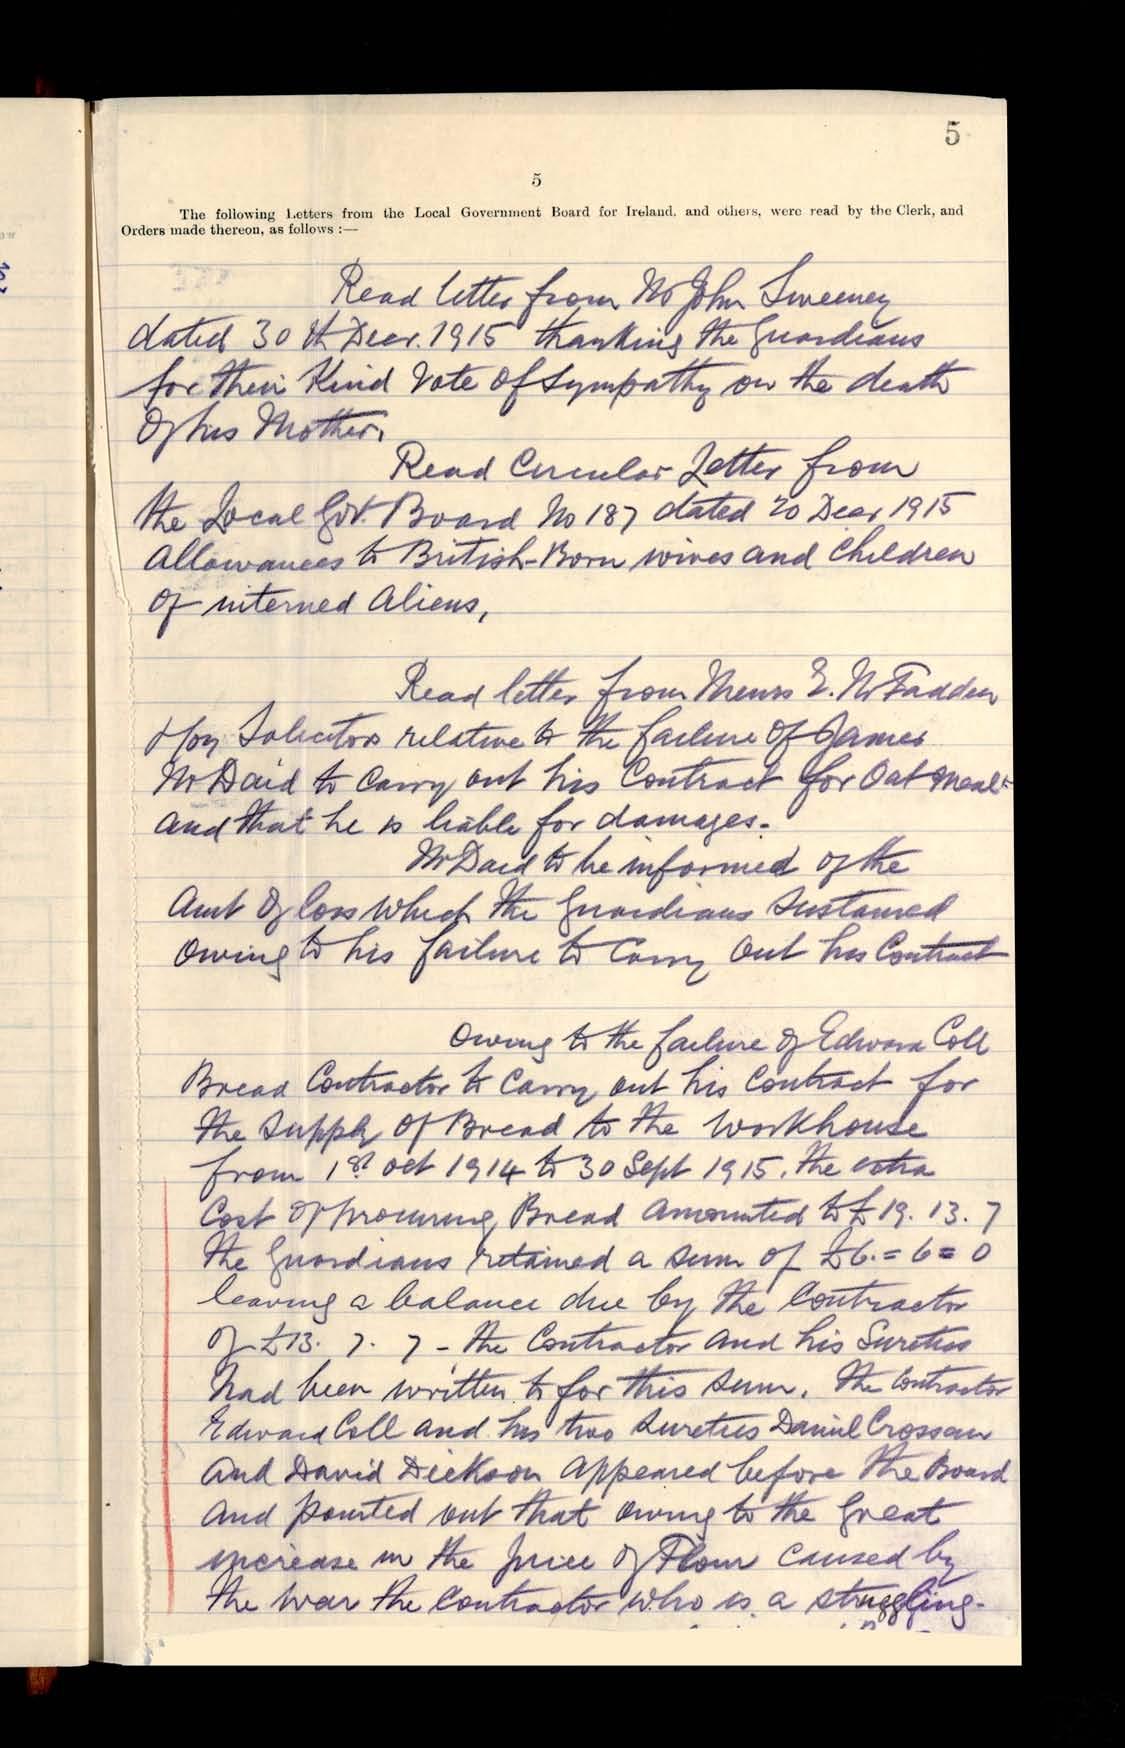 5
5
The following Letters from the Local Government Board for Ireland, and others, were read by the Clerk, and
Orders made thereon, as follows :—
Read letter from Mr John Sweeney
dated 30th Decr. 1915 thanking the Guardians
for their Kind Vote of Sympathy on the death
Of his Mother.
Read Circular Letter from
the Local Govt. Board No 187 dated 20 Decr 1915
Allowances to British-Born wives and Children
Of interned Aliens,
Read letter from Messrs E. McFadden
Solicitors relative to the failure Of James
McDaid to Carry out his Contract for Oat meal
And that he is liable for damages.
McDaid to be informed of the
Amt Of loss which the Guardians Sustained
Owing to his failure to Carry Out his Contract
Owing to the failure of Edward Coll
Bread Contractor to Carry out his Contract for
the Supply Of Bread to the Workhouse
from 1st Oct 1914 to 30 Sept 1915. the extra
Cost Of procuring Bread Amounted to £19. 13. 7
the Guardians retained a sum of £6.=6=0
leaving a balance due by the Contractor
Of £13. 7. 7 - the Contractor and his Sureties
had been written to for this sum. The Contractor
Edward Coll and his two Sureties Daniel Crossan
And David Dickson Appeared before the Board
And pointed out that owing to the Great
increase in the price Of Flour Caused by
the war the Contractor who is a struggling-